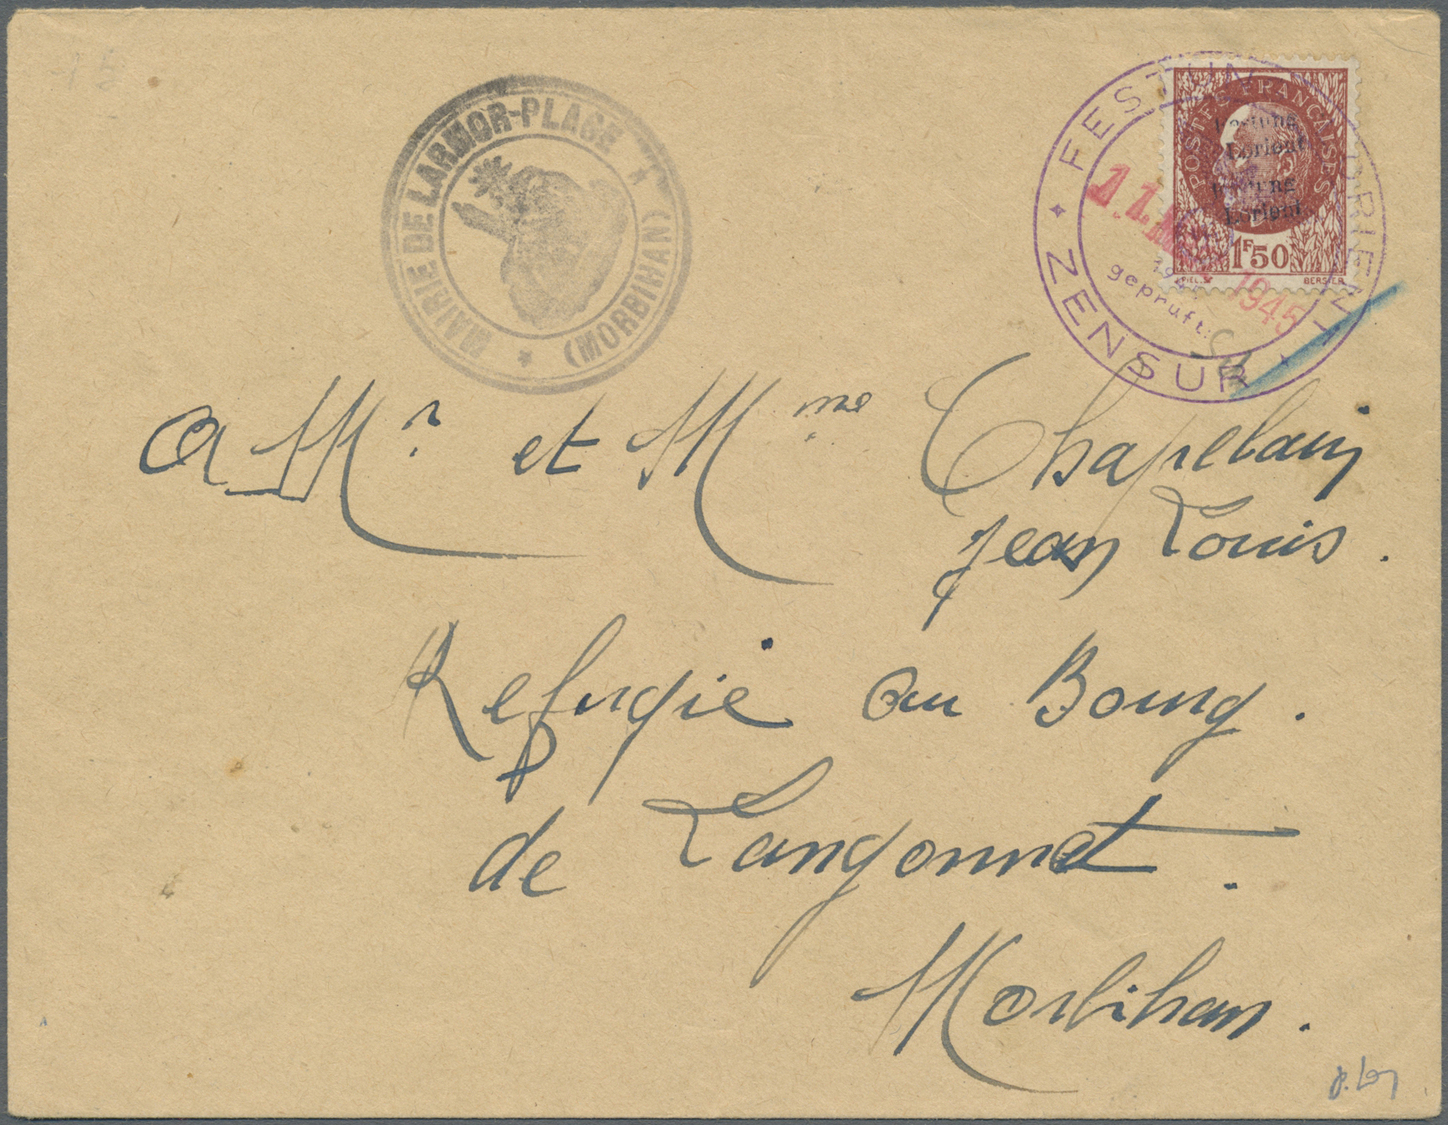 MAIRIE DE LARMOR-PLAGE
(MORBIHAN)
FESTUNG LORIENT
ZENSUR
geprüft:
1945
POSTES FRANÇAISES
Festung
Lorient
Lorient
1F50
BERSIER
A Mr et Mme Chapelain
Jean Louis.
Refugie au Bourg.
de Langonnet.
Morbihan.